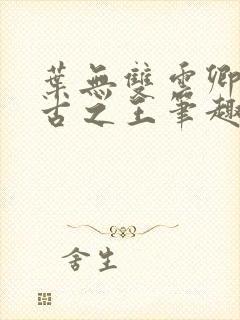 葉無雙雲卿
古之王筆趣
舍生